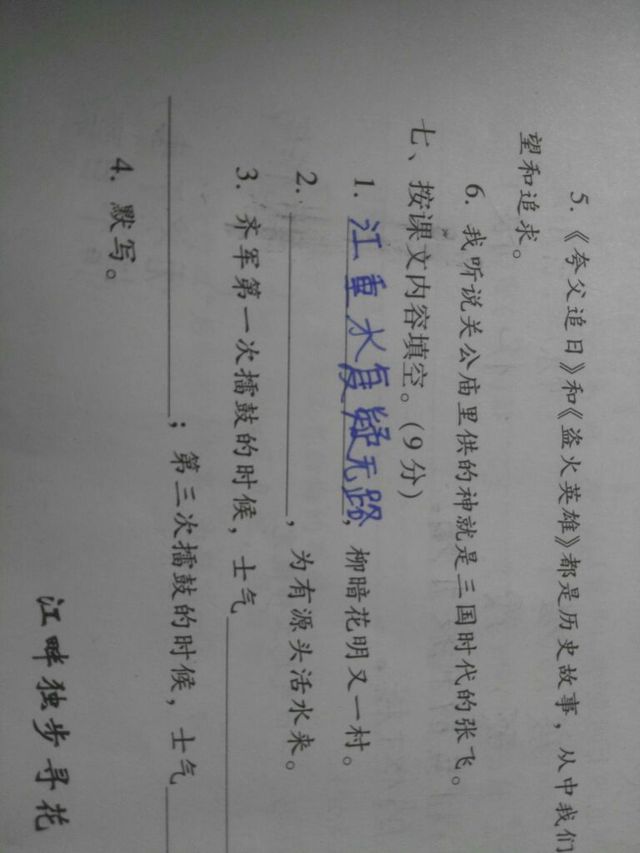 5. 《夸父追日》和《盗火英雄》都是历史故事，从中我们
望和追求。
6. 我听说关公庙里供的神就是三国时代的张飞。
七、按课文内容填空。(9分)
1. 江重水复疑无路，柳暗花明又一村。
2. ，为有源头活水来。
3. 齐军第一次擂鼓的时候，士气
；第三次擂鼓的时候，士气
4. 默写。
江畔独步寻花